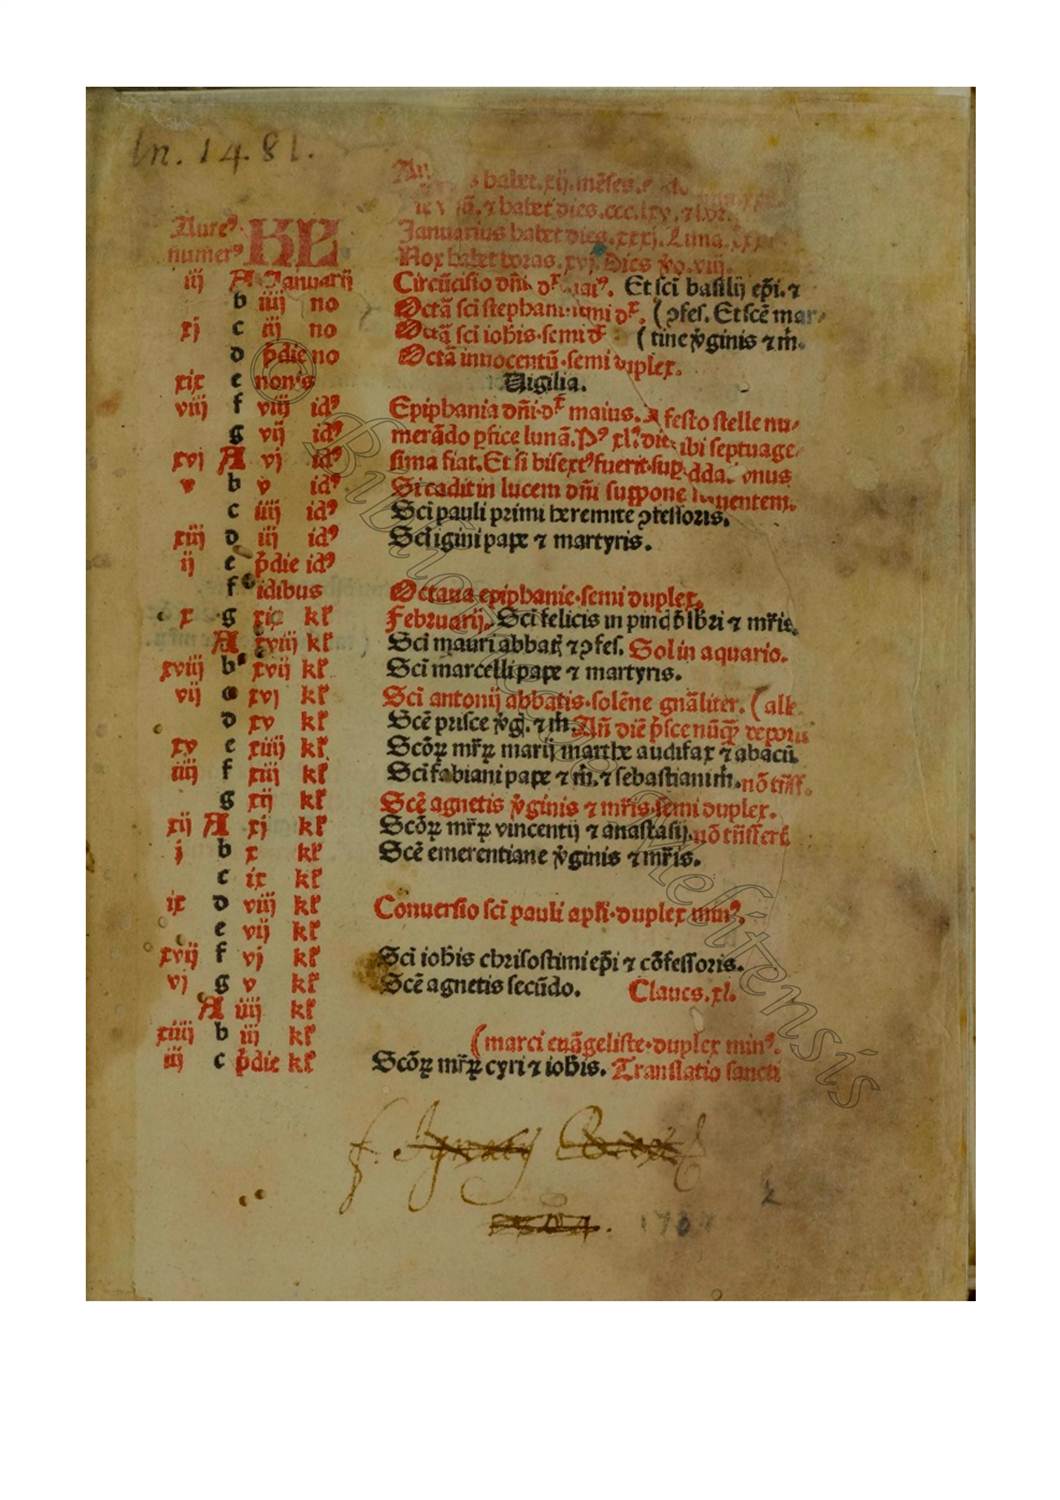 In. 1481.
habet. xij. mēses.
⁊ habet dies. ccc. lxv. ⁊
Aureꝰ. KL Januarius habet dies. xxxj. Luna.
numerꝰ Nox habet horas. xvj. Dies ỽo. viij.
iij A Januarij Circūcisio dñi. Et sc̄i basilij ep̄i. ⁊
b iiij no Octā sc̄i stephani. (ꝯfes. Et sc̄e mar-
xj c iij no Octā sc̄i ioh̄is. semi (tine ỽginis ⁊ m̄.
d p̄die no Octā innocentū. semi duplex.
xix e non's Uigilia.
viij f viij idꝰ Epiphania dñi. maius. A festo stelle nu-
g vij idꝰ merādo ꝑfice lunā. ibi septuage-
xvj A vj idꝰ sima fiat. Et si bisextꝰ fuerit
v b v idꝰ Si cadit in lucem dñi suppone
c iiij idꝰ Sc̄i pauli primi heremite ꝯfessoris.
xiij d iij idꝰ Sc̄i igini pape ⁊ martyris.
ij e p̄die idꝰ
f idibus Octaua epiphanie. semi duplex.
x g xix kł Februarij. Sc̄i felicis in ⁊ mr̄is.
A xviij kł Sc̄i mauri abbat̄ ⁊ ꝯfes. Sol in aquario.
xviij b xvij kł Sc̄i marcelli pape ⁊ martyris.
vij c xvj kł Sc̄i antonij abbatis. solēne gn̄aliter. (alle
d xv kł Sc̄e prisce ỽḡ. ⁊ m̄. An̄ diē p̄sce nūq̄
xv e xiiij kł Sc̄oꝝ mr̄ꝝ marij marthe audifax ⁊ abacū.
iiij f xiij kł Sc̄i fabiani pape ⁊ m̄. ⁊ sebastiani m̄. nō
g xij kł Sc̄e agnetis ỽginis ⁊ mr̄is. semi duplex.
xij A xj kł Sc̄oꝝ mr̄ꝝ vincentij ⁊ anastasij. nō
j b x kł Sc̄e emerentiane ỽginis ⁊ mr̄is.
c ix kł
ix d viij kł Conuersio sc̄i pauli apl̄i. duplex minꝰ.
e vij kł
xvij f vj kł Sc̄i ioh̄is chrisostimi ep̄i ⁊ cōfessoris.
vj g v kł Sc̄e agnetis secūdo. Claues. xl.
A iiij kł
xiiij b iij kł (marci euāgeliste. duplex minꝰ.
iij c p̄die kł Sc̄oꝝ mr̄ꝝ cyri ⁊ ioh̄is. Translatio sancti
f. Ignatij
© Bibliotheca Melitensis